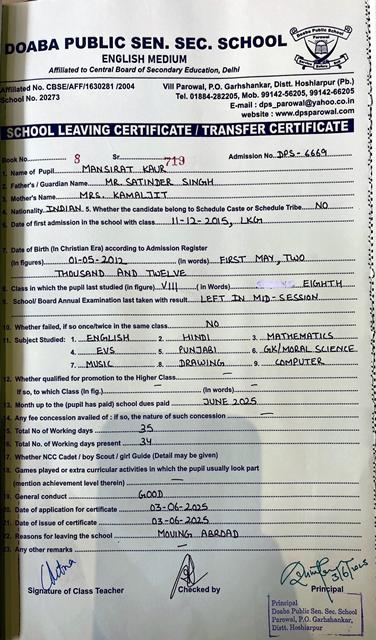 DOABA PUBLIC SEN. SEC. SCHOOL
ENGLISH MEDIUM
Affiliated to Central Board of Secondary Education, Delhi
Affiliated No. CBSE/AFF/1630281 /2004
School No. 20273
Vill Parowal, P.O. Garhshankar, Distt. Hoshiarpur (Pb.)
Tel. 01884-282205, Mob. 99142-56205, 99142-66205
E-mail : dps_parowal@yahoo.co.in
website : www.dpsparowal.com
SCHOOL LEAVING CERTIFICATE / TRANSFER CERTIFICATE
Book No. 8 Sr. 719 Admission No. DPS-6669
1. Name of Pupil MANSIRAT KAUR
2. Father's / Guardian Name MR. SATINDER SINGH
3. Mother's Name MRS. KAMALJIT
4. Nationality INDIAN 5. Whether the candidate belong to Schedule Caste or Schedule Tribe NO
6. Date of first admission in the school with class 11-12-2015, LKG
7. Date of Birth (In Christian Era) according to Admission Register
(In figures) 01-05-2012 (In words) FIRST MAY, TWO
THOUSAND AND TWELVE
8. Class in which the pupil last studied (in figure) VIII (In Words) EIGHTH
9. School/ Board Annual Examination last taken with result LEFT IN MID-SESSION
10. Whether failed, if so once/twice in the same class NO
11. Subject Studied: 1. ENGLISH 2. HINDI 3. MATHEMATICS
4. EVS 5. PUNJABI 6. GK/MORAL SCIENCE
7. MUSIC 8. DRAWING 9. COMPUTER
12. Whether qualified for promotion to the Higher Class —
If so, to which Class (In fig.) — (In words) —
13. Month up to the (pupil has paid) school dues paid JUNE 2025
14. Any fee concession availed of : if so, the nature of such concession —
15. Total No of Working days 35
16. Total No. of Working days present 34
17. Whether NCC Cadet / boy Scout / girl Guide (Detail may be given)
18. Games played or extra curricular activities in which the pupil usually look part
(mention achievement level therein) —
19. General conduct GOOD
20. Date of application for certificate 03-06-2025
21. Date of issue of certificate 03-06-2025
22. Reasons for leaving the school MOVING ABROAD
23. Any other remarks —
3/6/2025
Signature of Class Teacher Checked by Principal
Principal
Doaba Public Sen. Sec. School
Parowal, P.O. Garhshankar,
Distt. Hoshiarpur